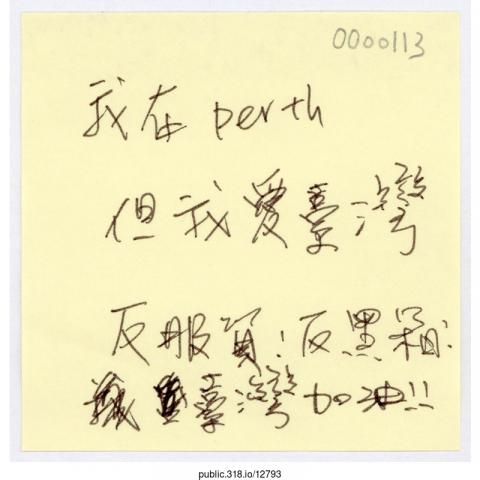 0000113
我在 perth
但我愛臺灣
反服貿!反黑箱!
臺灣加油!!
public.318.io/12793